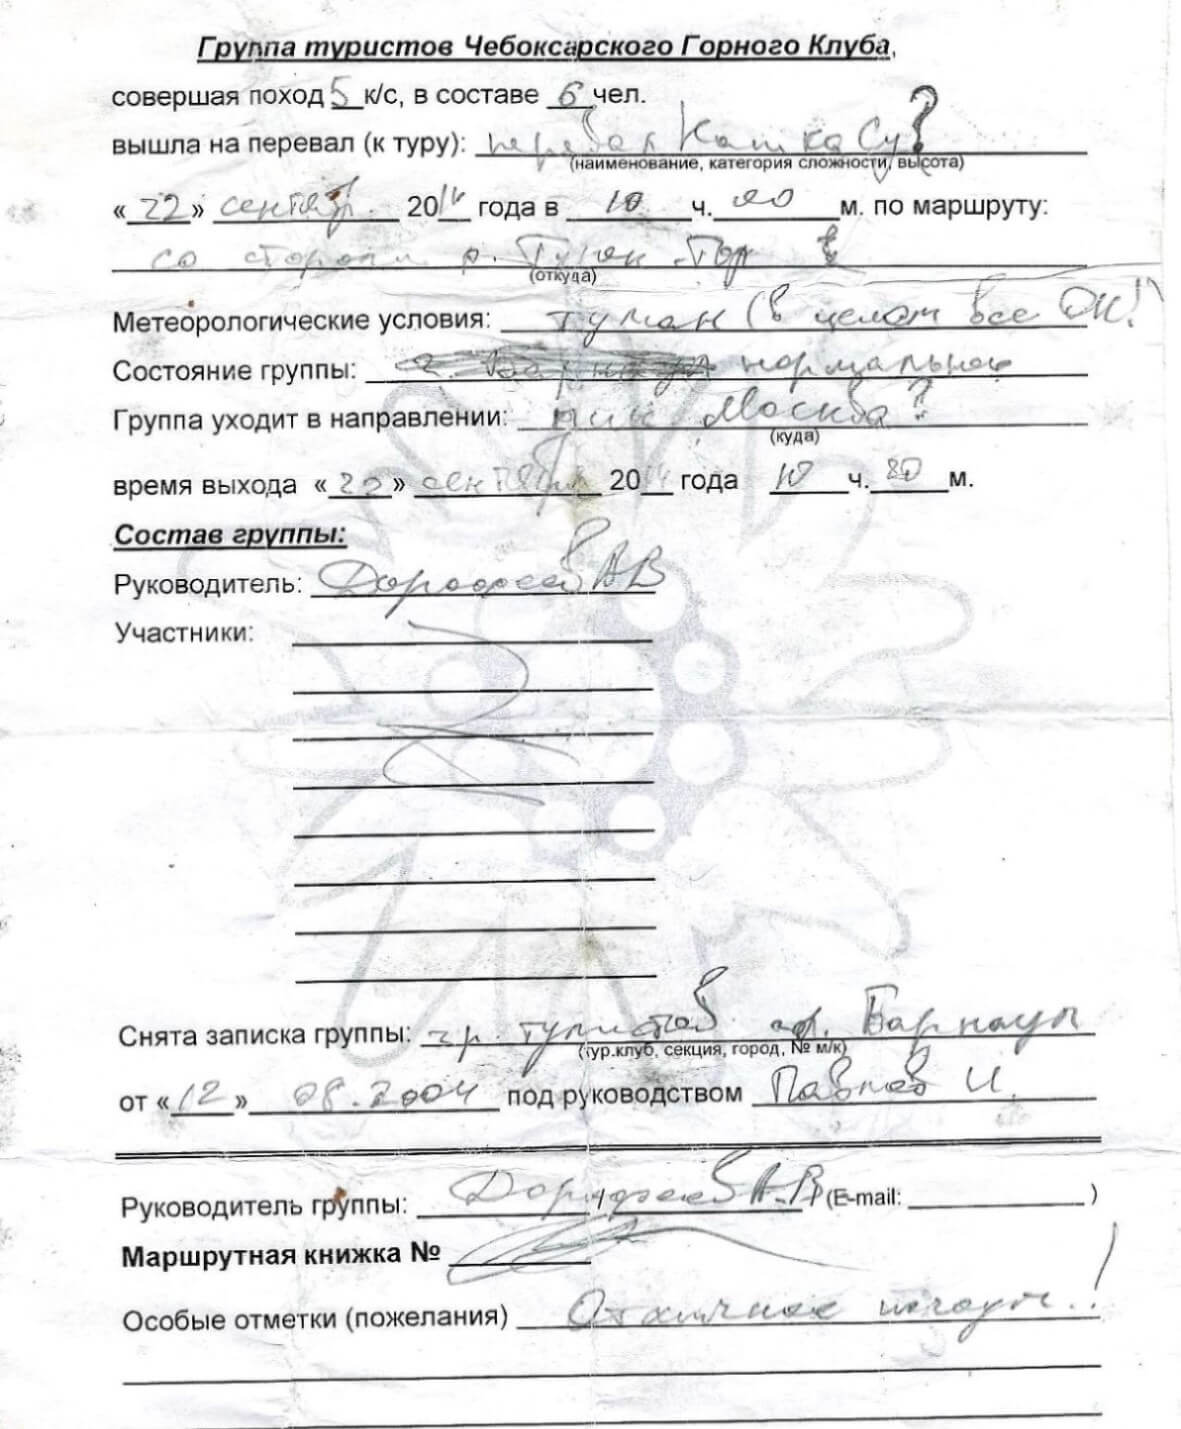 Группа туристов Чебоксарского Горного Клуба,
совершая поход 5 к/с, в составе 6 чел.
вышла на перевал (к туру): перевал Кашка Су?
(наименование, категория сложности, высота)
«22» сентябр. 2014 года в 10 ч. 00 м. по маршруту:
со стороны р. Туюк
(откуда)
Метеорологические условия: туман (в целом все ОК!)
Состояние группы: нормальное
Группа уходит в направлении: пик Москва?
(куда)
время выхода «22» сентября 2014 года 10 ч. 20 м.
Состав группы:
Руководитель: Дорофеев АВ
Участники:
Снята записка группы: гр. туристов Барнаул
(тур.клуб, секция, город, № м/к)
от «12» 08.2004 под руководством Павлов И.
Руководитель группы: Дорофеев А.В (E-mail: )
Маршрутная книжка №
Особые отметки (пожелания) Отличное !